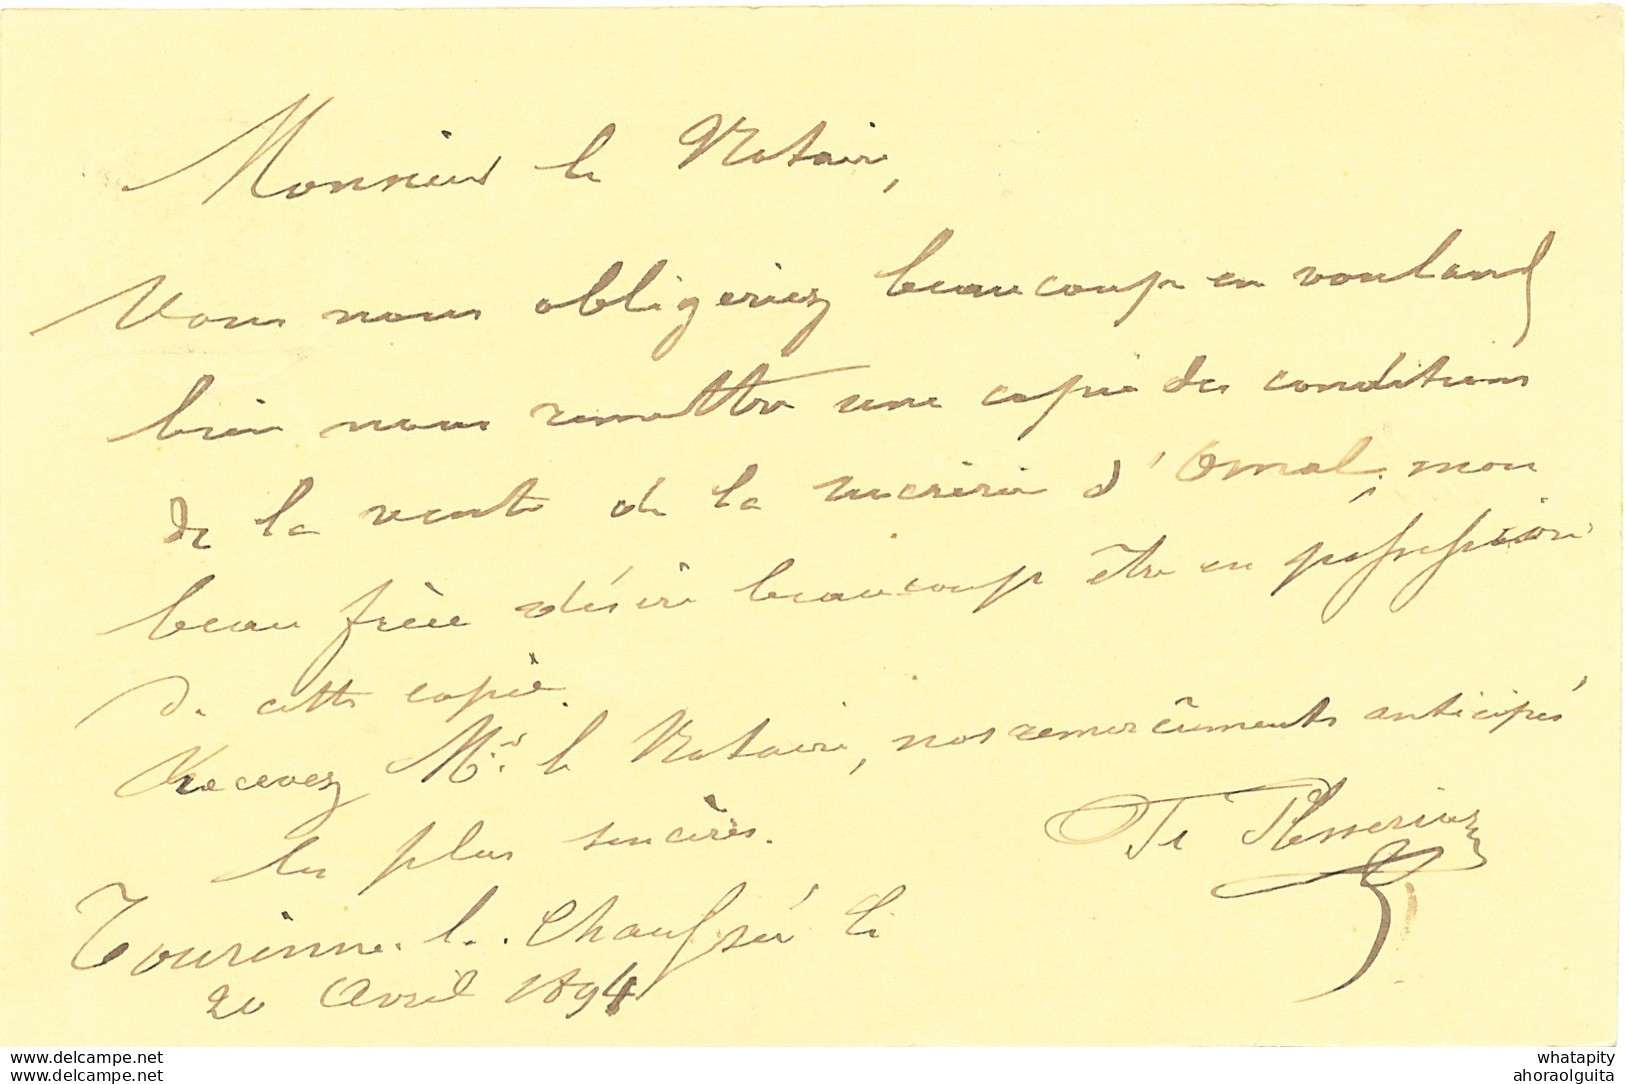 Monsieur le Notaire,
Vous nous obligeriez beaucoup en voulant
bien nous remettre une copie des conditions
de la vente de la sucrerie d'Omal, mon
beau frère désire beaucoup être en possession
de cette copie.
Recevez Mr. le Notaire, nos remerciments anticipés
les plus sincères.
Tourinne-la-Chaussée le
20 Avril 1894
www.delcampe.net
www.delcampe.net
whatapity
ahoraolguita